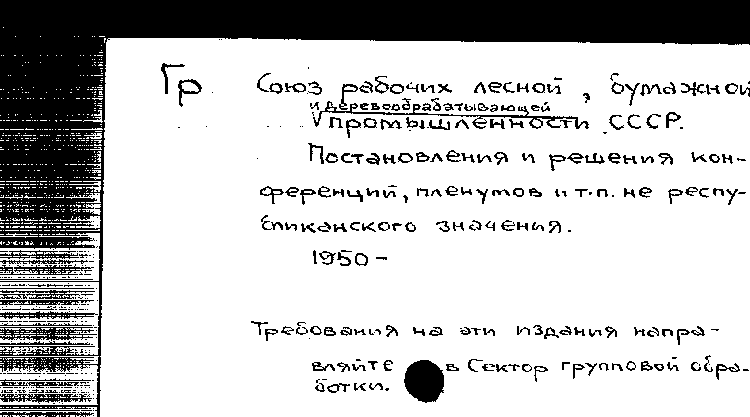 Гр Союз рабочих лесной, бумажной
и деревообрабатывающей
промышленности СССР.
Постановления и решения кон-
ференций, пленумов и т.п. не респу-
бликанского значения.
1950-
Требования на эти издания напра-
вляйте в Сектор групповой обра-
ботки.